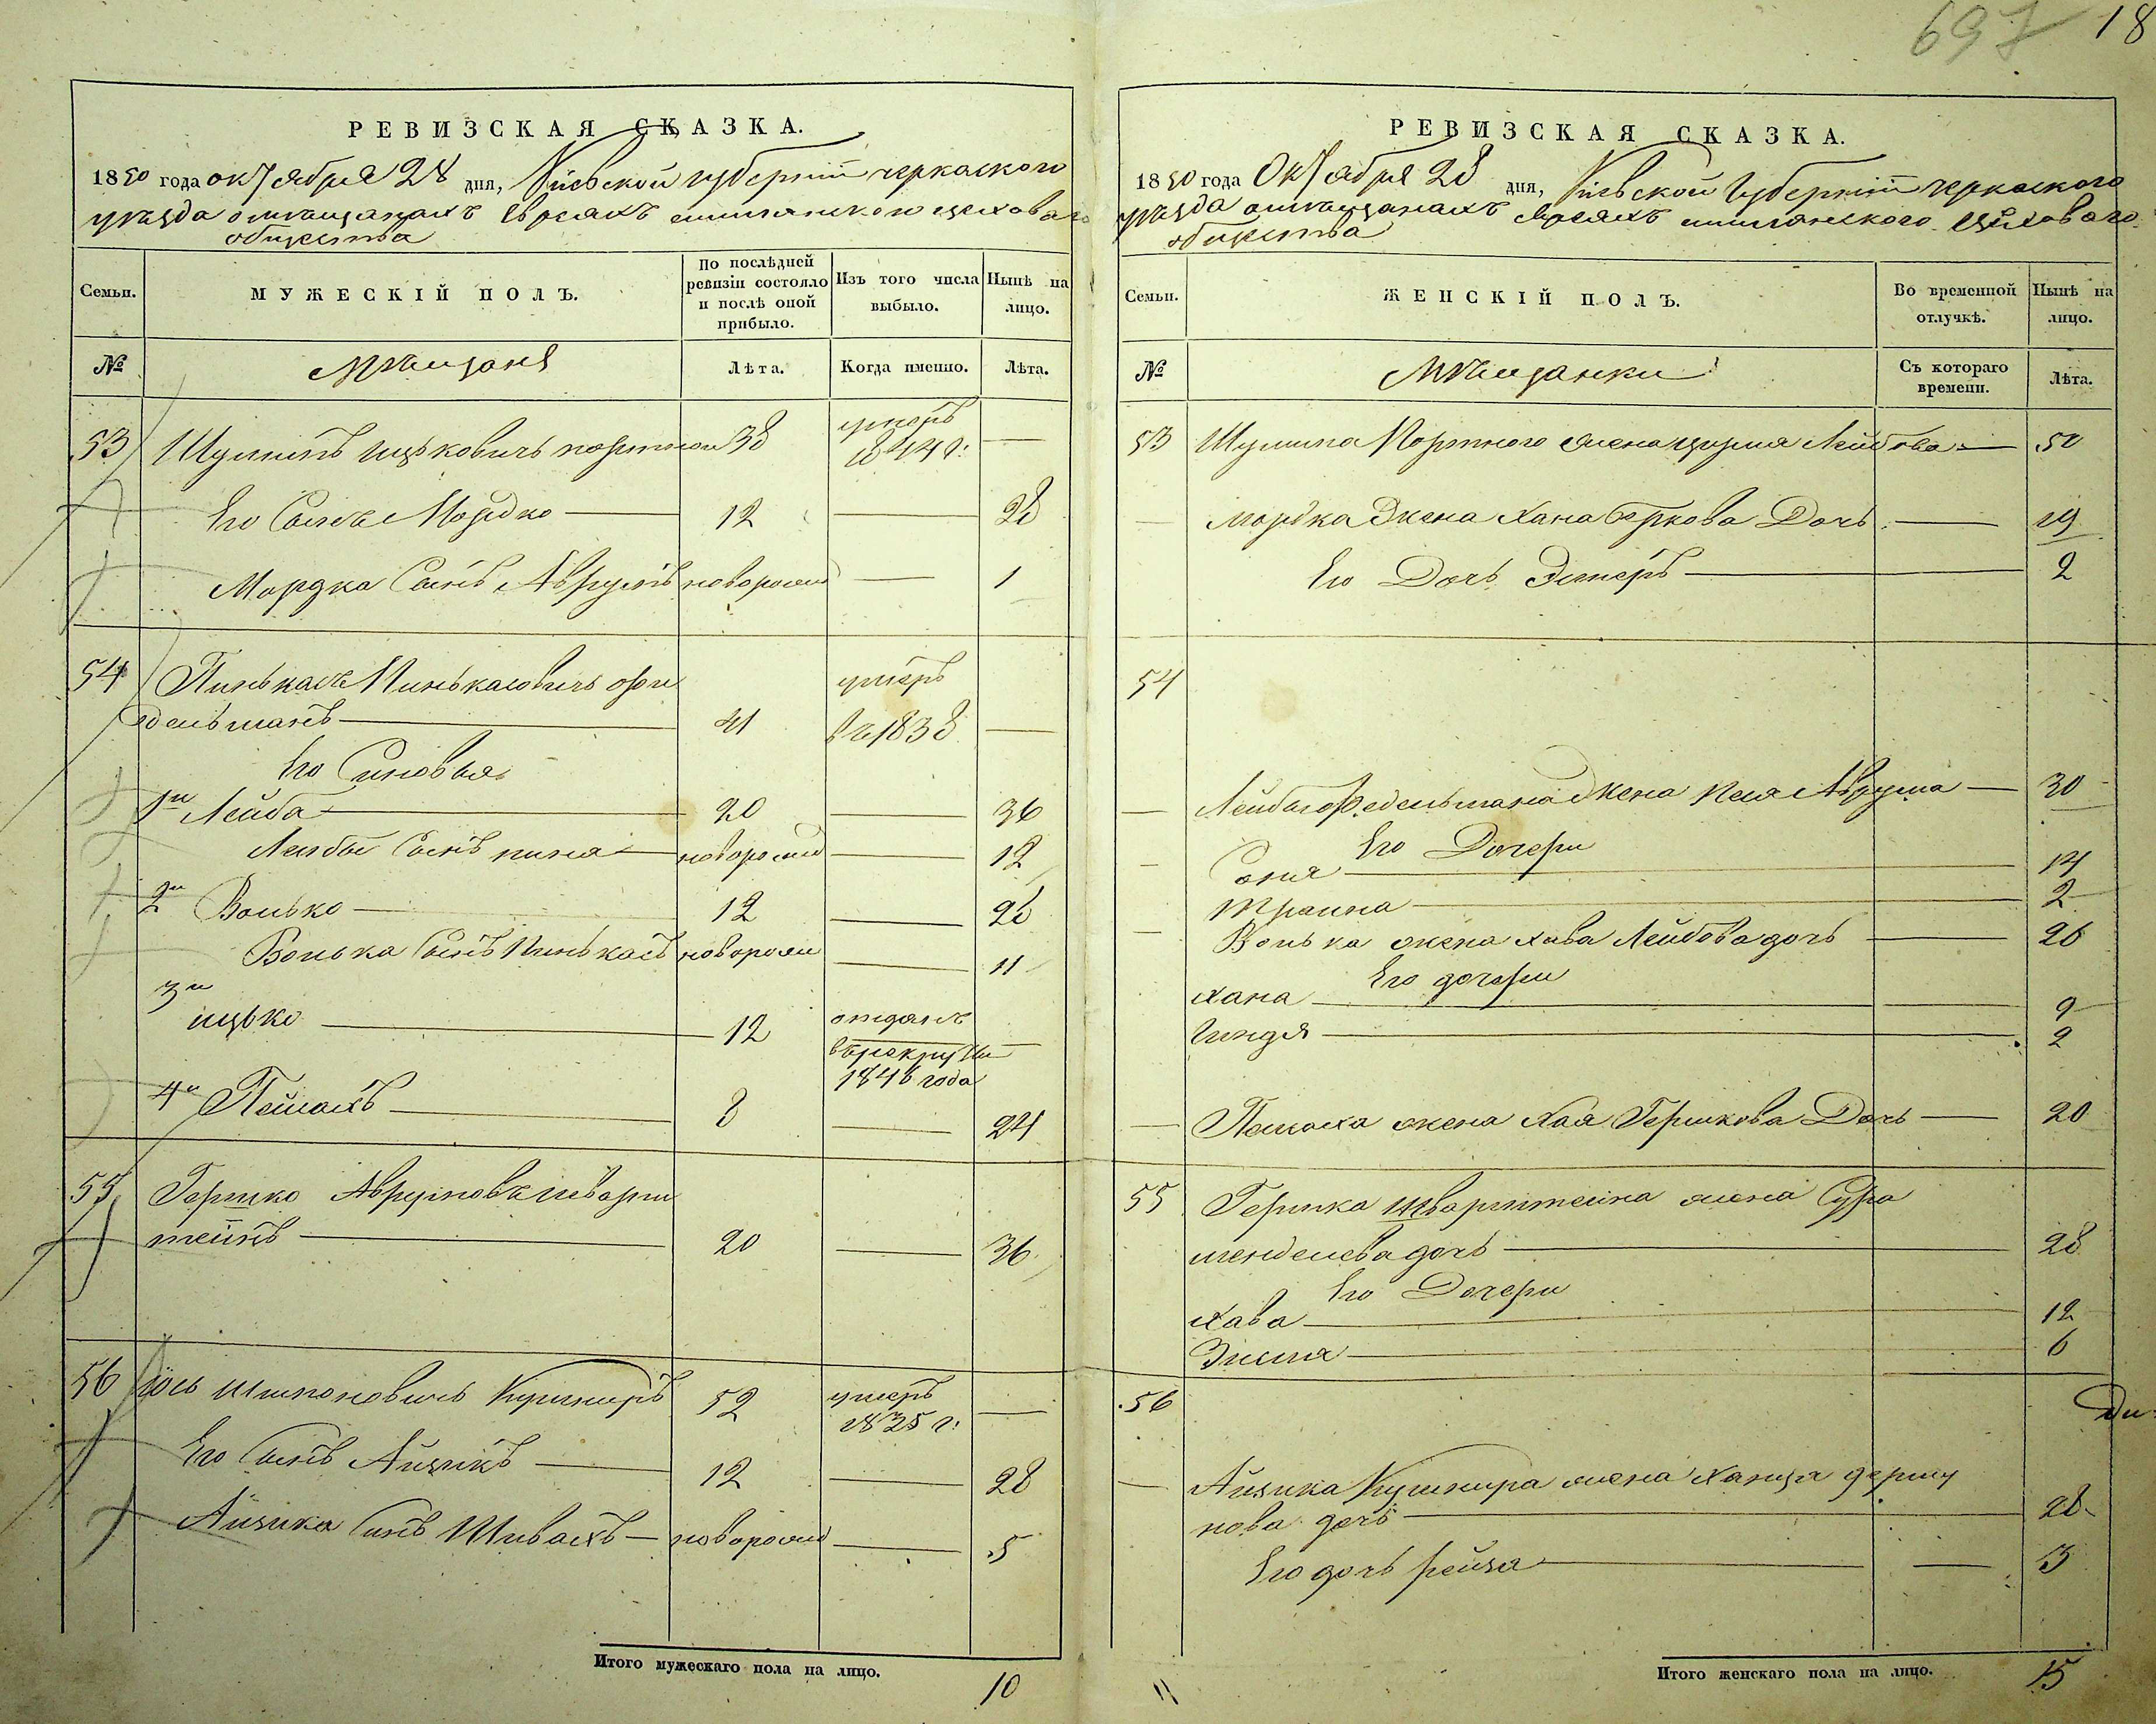 697 18
РЕВИЗСКАЯ СКАЗКА.
1850 года октября 28 дня, Киевской губернии черкаского
уѣзда о мещанахъ евреяхъ цеховаго
общества
Семьи.
МУЖЕСКІЙ ПОЛЪ.
По послѣдней ревизіи состояло и послѣ оной прибыло.
Изъ того числа выбыло.
Нынѣ на лицо.
№
Мѣщане
Лѣта.
Когда именно.
Лѣта.
53 Шулимъ Ицьковичь портной 38 умеръ 1844 г: —
Его Сынъ Мордко — 12 — 28
Мордка Сынъ Аврумъ новорожд — 1
54 Пинькасъ Пинькасовичь фри
дельманъ — 41 умеръ въ 1838 —
Его Синовья
1й Лейба — 20 — 36
Лейбы Сынъ пиня — новорожд — 12
2й Волько — 12 — 28
Волька Сынъ Пинькасъ новорожд — 11
3й ицько — 12 отданъ в рекруты 1846 года —
4й Пейсахъ — 8 — 24
55 Гершко Аврумовъ шварц
тейнъ — 20 — 36
56 Іось Шимоновичь Кушниръ 52 умеръ 1835 г: —
Его Сынъ Айзикъ — 12 — 28
Айзика Сынъ — новорожд — 5
Итого мужескаго пола на лицо. 10
РЕВИЗСКАЯ СКАЗКА.
1850 года Октября 28 дня, Киевской Губернии черкаского
уѣзда о мещанахъ евреяхъ цеховаго
общества
Семьи.
ЖЕНСКІЙ ПОЛЪ.
Во временной отлучкѣ.
Нынѣ на лицо.
№
Мѣщанки
Съ котораго времени.
Лѣта.
53 Шулима Портного жена Лейбова — 50
— Мордка Жена Хана Беркова Дочь — 29
Его Дочь Эстеръ — 2
54
— Лейбы Фридельмана Жена Аврума — 30
Его Дочери
— Соня — 14
Фраина — 2
— Волька жена хава Лейбова дочь — 26
Его дочери
хана — 9
Гиндя — 2
— Пейсаха жена Хая Гершкова Дочь — 20
55 Гершка Шварцштейна жена Сура
менделева дочь — 28
Его Дочери
Хава — 12
Зисля — 6
56
— Айзика Кушнира жена
нова дочь — 28
Его дочь рейза — 3
Итого женскаго пола на лицо. 15